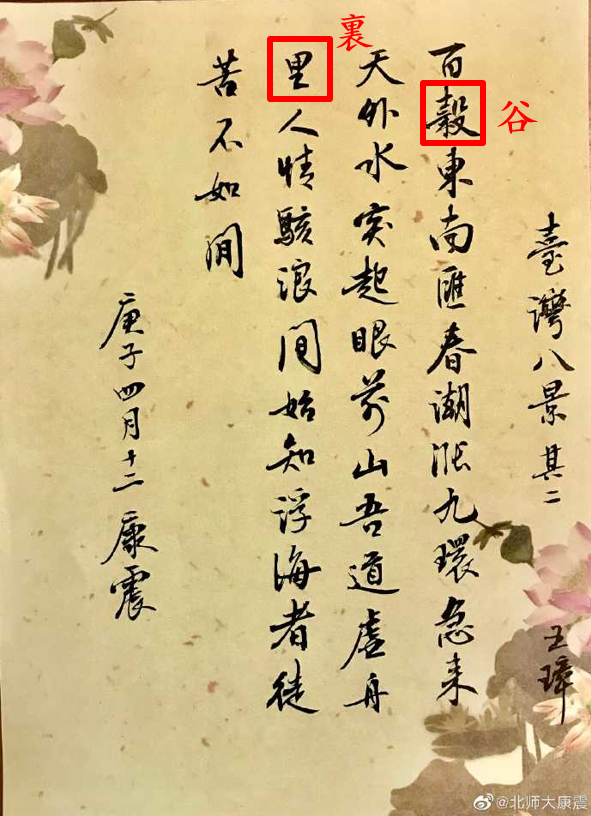 臺灣八景其二
王璋
百穀東南匯春潮漲九環急来
天外水突起眼前山吾道虛舟
里人情駭浪间始知浮海者徒
苦不如閒
庚子四月十二康震
裏
谷
@北师大康震